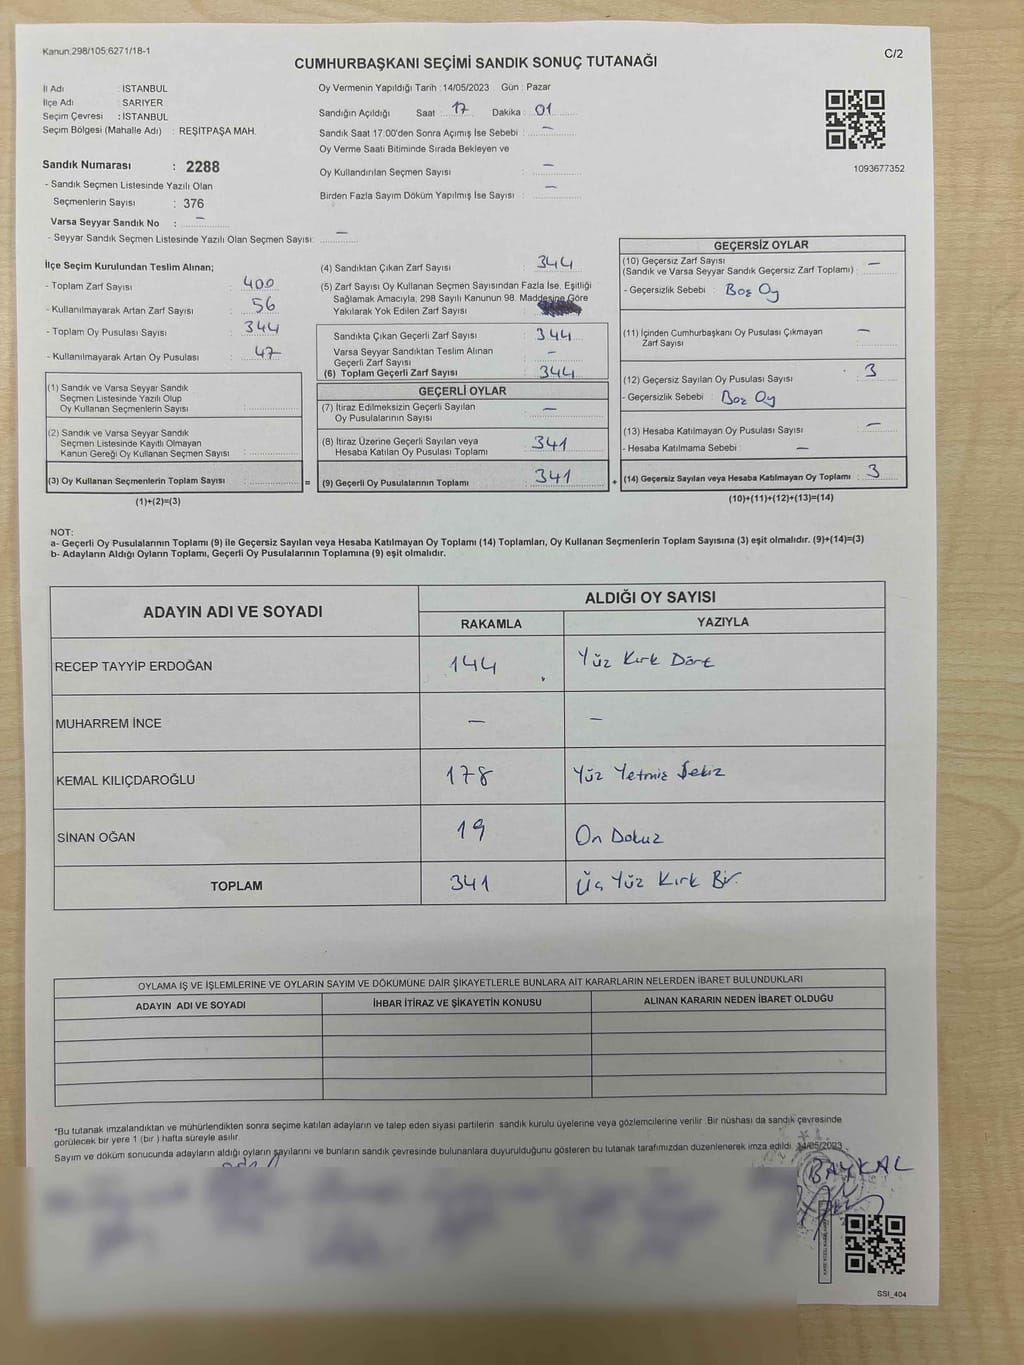 Kanun,298/105,6271/18-1
C/2
CUMHURBAŞKANI SEÇİMİ SANDIK SONUÇ TUTANAĞI
İl Adı : İSTANBUL
İlçe Adı : SARIYER
Seçim Çevresi : İSTANBUL
Seçim Bölgesi (Mahalle Adı) : REŞİTPAŞA MAH.
Sandık Numarası : 2288
- Sandık Seçmen Listesinde Yazılı Olan
Seçmenlerin Sayısı : 376
Varsa Seyyar Sandık No : —
- Seyyar Sandık Seçmen Listesinde Yazılı Olan Seçmen Sayısı: —
Oy Vermenin Yapıldığı Tarih : 14/05/2023 Gün : Pazar
Sandığın Açıldığı Saat 17 Dakika : 01
Sandık Saat 17.00'den Sonra Açımış İse Sebebi : —
Oy Verme Saati Bitiminde Sırada Bekleyen ve
Oy Kullandırılan Seçmen Sayısı : —
Birden Fazla Sayım Döküm Yapılmış İse Sayısı : —
1093677352
İlçe Seçim Kurulundan Teslim Alınan;
- Toplam Zarf Sayısı : 400
- Kullanılmayarak Artan Zarf Sayısı : 56
- Toplam Oy Pusulası Sayısı : 344
- Kullanılmayarak Artan Oy Pusulası : 47
(1) Sandık ve Varsa Seyyar Sandık
Seçmen Listesinde Yazılı Olup
Oy Kullanan Seçmenlerin Sayısı :
(2) Sandık ve Varsa Seyyar Sandık
Seçmen Listesinde Kayıtlı Olmayan
Kanun Gereği Oy Kullanan Seçmen Sayısı :
(3) Oy Kullanan Seçmenlerin Toplam Sayısı :
(1)+(2)=(3)
(4) Sandıktan Çıkan Zarf Sayısı : 344
(5) Zarf Sayısı Oy Kullanan Seçmen Sayısından Fazla İse, Eşitliği
Sağlamak Amacıyla; 298 Sayılı Kanunun 98. Maddesine Göre
Yakılarak Yok Edilen Zarf Sayısı :
Sandıkta Çıkan Geçerli Zarf Sayısı : 344
Varsa Seyyar Sandıktan Teslim Alınan
Geçerli Zarf Sayısı : —
(6) Toplam Geçerli Zarf Sayısı : 344
GEÇERLİ OYLAR
(7) İtiraz Edilmeksizin Geçerli Sayılan
Oy Pusulalarının Sayısı : —
(8) İtiraz Üzerine Geçerli Sayılan veya
Hesaba Katılan Oy Pusulası Toplamı : 341
= (9) Geçerli Oy Pusulalarının Toplamı : 341
GEÇERSİZ OYLAR
(10) Geçersiz Zarf Sayısı
(Sandık ve Varsa Seyyar Sandık Geçersiz Zarf Toplamı) : —
- Geçersizlik Sebebi : Boş Oy
(11) İçinden Cumhurbaşkanı Oy Pusulası Çıkmayan
Zarf Sayısı : —
(12) Geçersiz Sayılan Oy Pusulası Sayısı : 3
- Geçersizlik Sebebi : Boş Oy
(13) Hesaba Katılmayan Oy Pusulası Sayısı : —
- Hesaba Katılmama Sebebi : —
+ (14) Geçersiz Sayılan veya Hesaba Katılmayan Oy Toplamı : 3
(10)+(11)+(12)+(13)=(14)
NOT:
a- Geçerli Oy Pusulalarının Toplamı (9) ile Geçersiz Sayılan veya Hesaba Katılmayan Oy Toplamı (14) Toplamları, Oy Kullanan Seçmenlerin Toplam Sayısına (3) eşit olmalıdır. (9)+(14)=(3)
b- Adayların Aldığı Oyların Toplamı, Geçerli Oy Pusulalarının Toplamına (9) eşit olmalıdır.
ADAYIN ADI VE SOYADI
ALDIĞI OY SAYISI
RAKAMLA YAZIYLA
RECEP TAYYİP ERDOĞAN 144 Yüz Kırk Dört
MUHARREM İNCE — —
KEMAL KILIÇDAROĞLU 178 Yüz Yetmiş Sekiz
SİNAN OĞAN 19 On Dokuz
TOPLAM 341 Üç Yüz Kırk Bir
OYLAMA İŞ VE İŞLEMLERİNE VE OYLARIN SAYIM VE DÖKÜMÜNE DAİR ŞİKAYETLERLE BUNLARA AİT KARARLARIN NELERDEN İBARET BULUNDUKLARI
ADAYIN ADI VE SOYADI İHBAR İTİRAZ VE ŞİKAYETİN KONUSU ALINAN KARARIN NEDEN İBARET OLDUĞU
*Bu tutanak imzalandıktan ve mühürlendikten sonra seçime katılan adayların ve talep eden siyasi partilerin sandık kurulu üyelerine veya gözlemcilerine verilir. Bir nüshası da sandık çevresinde
görülecek bir yere 1 (bir ) hafta süreyle asılır.
Sayım ve döküm sonucunda adayların aldığı oyların sayılarını ve bunların sandık çevresinde bulunanlara duyurulduğunu gösteren bu tutanak tarafımızdan düzenlenerek imza edildi. 14/05/2023
BAYKAL
SSI_404